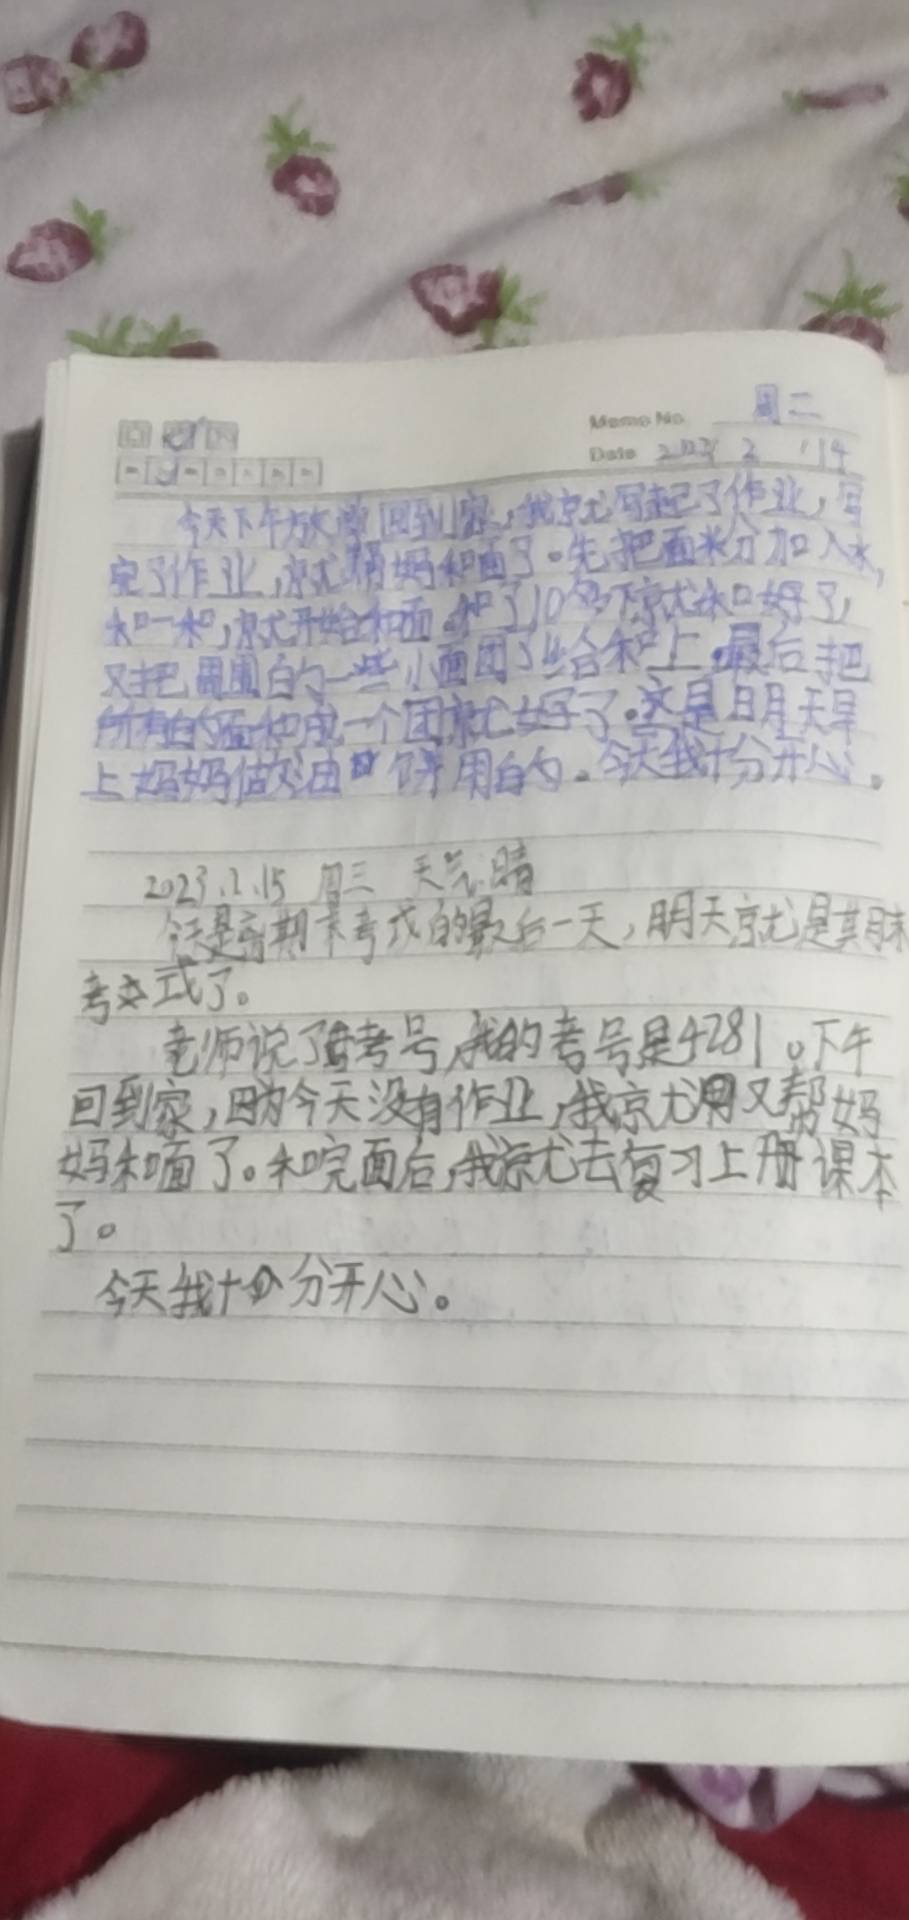 周二
Memo No.
Date 2023 2 14
今天下午放学回到家,我就写起了作业,写
完了作业,就帮妈和面了。先把面粉加入水,
和一和,就开始和面。和了10多下就和好了,
又把周围的一些小面团了给和上。最后把
所有的面和成一个团就好了。这是明天早
上妈妈做油饼用的。今天我十分开心。
2023.2.15 周三 天气:晴
今天是期末考试的最后一天,明天就是期末
考试了。
老师说了考号,我的考号是4281。下午
回到家,因为今天没有作业,我就又帮妈
妈和面了。和完面后,我就去复习上册课本
了。
今天我十分开心。